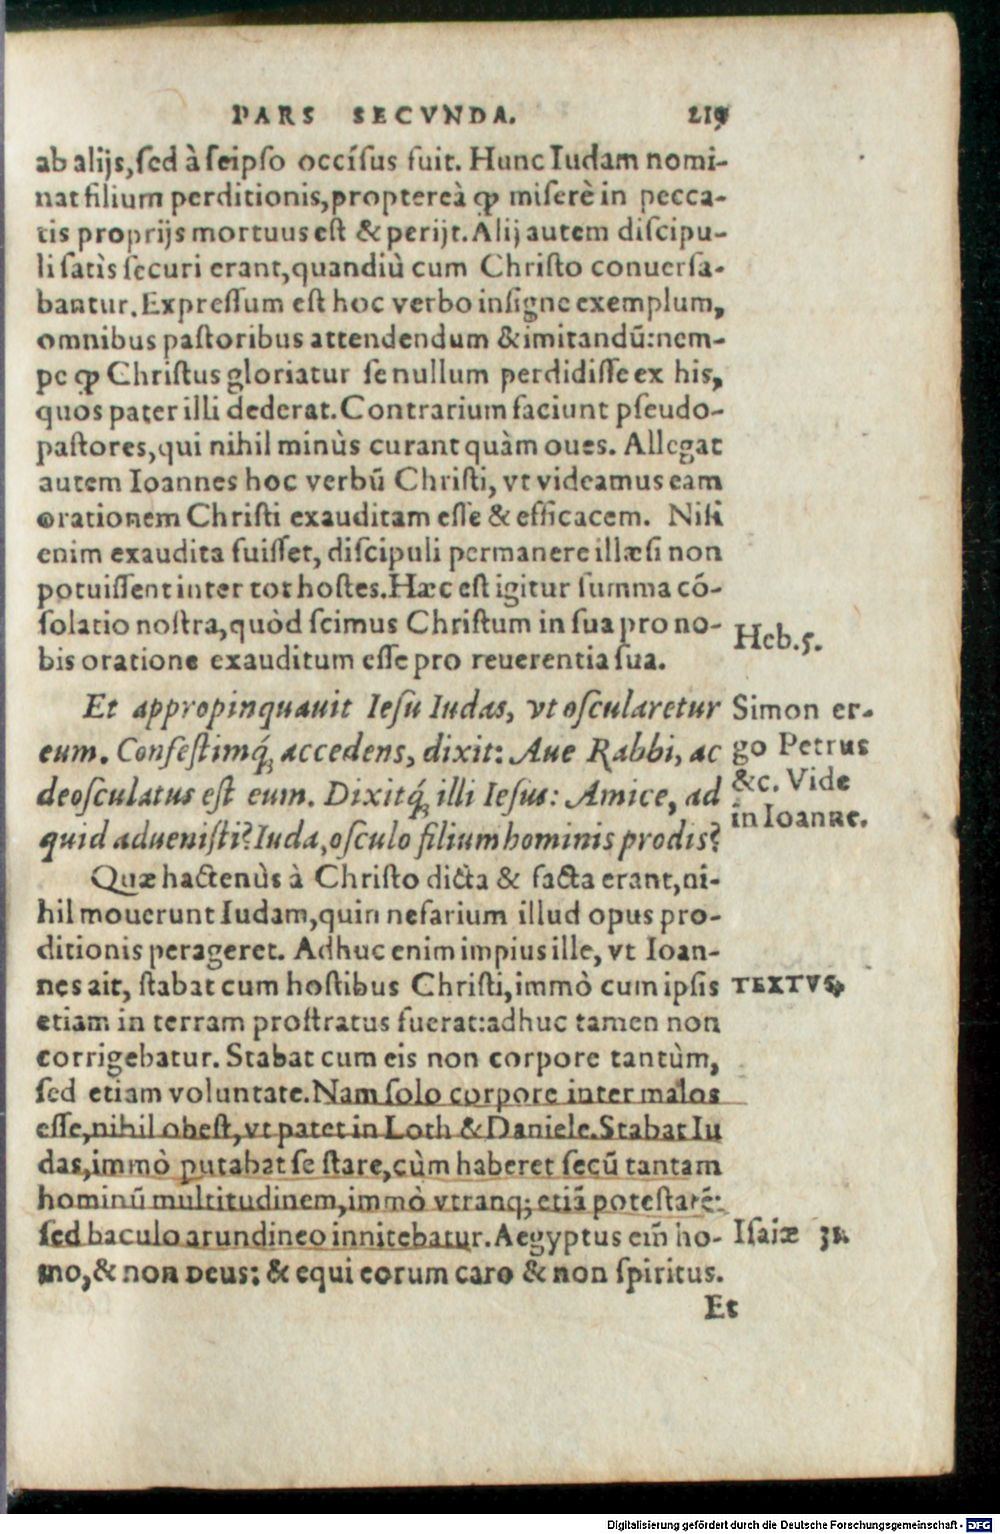 PARS SECVNDA. 219
ab alijs, sed à seipso occísus fuit. Hunc Iudam nomi-
nat filium perditionis, proptereà ꝙ miserè in pecca-
tis proprijs mortuus est & perijt. Alij autem discipu-
li satìs securi erant, quandiù cum Christo conuersa-
bantur. Expressum est hoc verbo insigne exemplum,
omnibus pastoribus attendendum & imitandū: nem-
pe ꝙ Christus gloriatur se nullum perdidisse ex his,
quos pater illi dederat. Contrarium faciunt pseudo-
pastores, qui nihil minùs curant quàm oues. Allegat
autem Ioannes hoc verbū Christi, vt videamus eam
orationem Christi exauditam esse & efficacem. Nisi
enim exaudita fuisset, discipuli permanere illæsi non
potuissent inter tot hostes. Hæc est igitur summa cō-
solatio nostra, quòd scimus Christum in sua pro no-
bis oratione exauditum esse pro reuerentia sua.
Heb. 5.
Et appropinquauit Iesu Iudas, vt oscularetur
eum. Confestimq́; accedens, dixit: Aue Rabbi, ac
deosculatus est eum. Dixitq́; illi Iesus: Amice, ad
quid aduenisti? Iuda, osculo filium hominis prodis?
Simon er-
go Petrus
&c. Vide
in Ioanne.
Quæ hactenùs à Christo dicta & facta erant, ni-
hil mouerunt Iudam, quin nefarium illud opus pro-
ditionis perageret. Adhuc enim impius ille, vt Ioan-
nes ait, stabat cum hostibus Christi, immò cum ipsis
etiam in terram prostratus fuerat: adhuc tamen non
corrigebatur. Stabat cum eis non corpore tantùm,
sed etiam voluntate. Nam solo corpore inter malos
esse, nihil obest, vt patet in Loth & Daniele. Stabat Iu
das, immò putabat se stare, cùm haberet secū tantam
hominū multitudinem, immò vtranq; etiā potestatē:
sed baculo arundineo innitebatur. Aegyptus em̄ ho-
mo, & non DEUS: & equi eorum caro & non spiritus.
TEXTVS.
Isaiæ 31.
Et
Digitalisierung gefördert durch die Deutsche Forschungsgemeinschaft - DFG